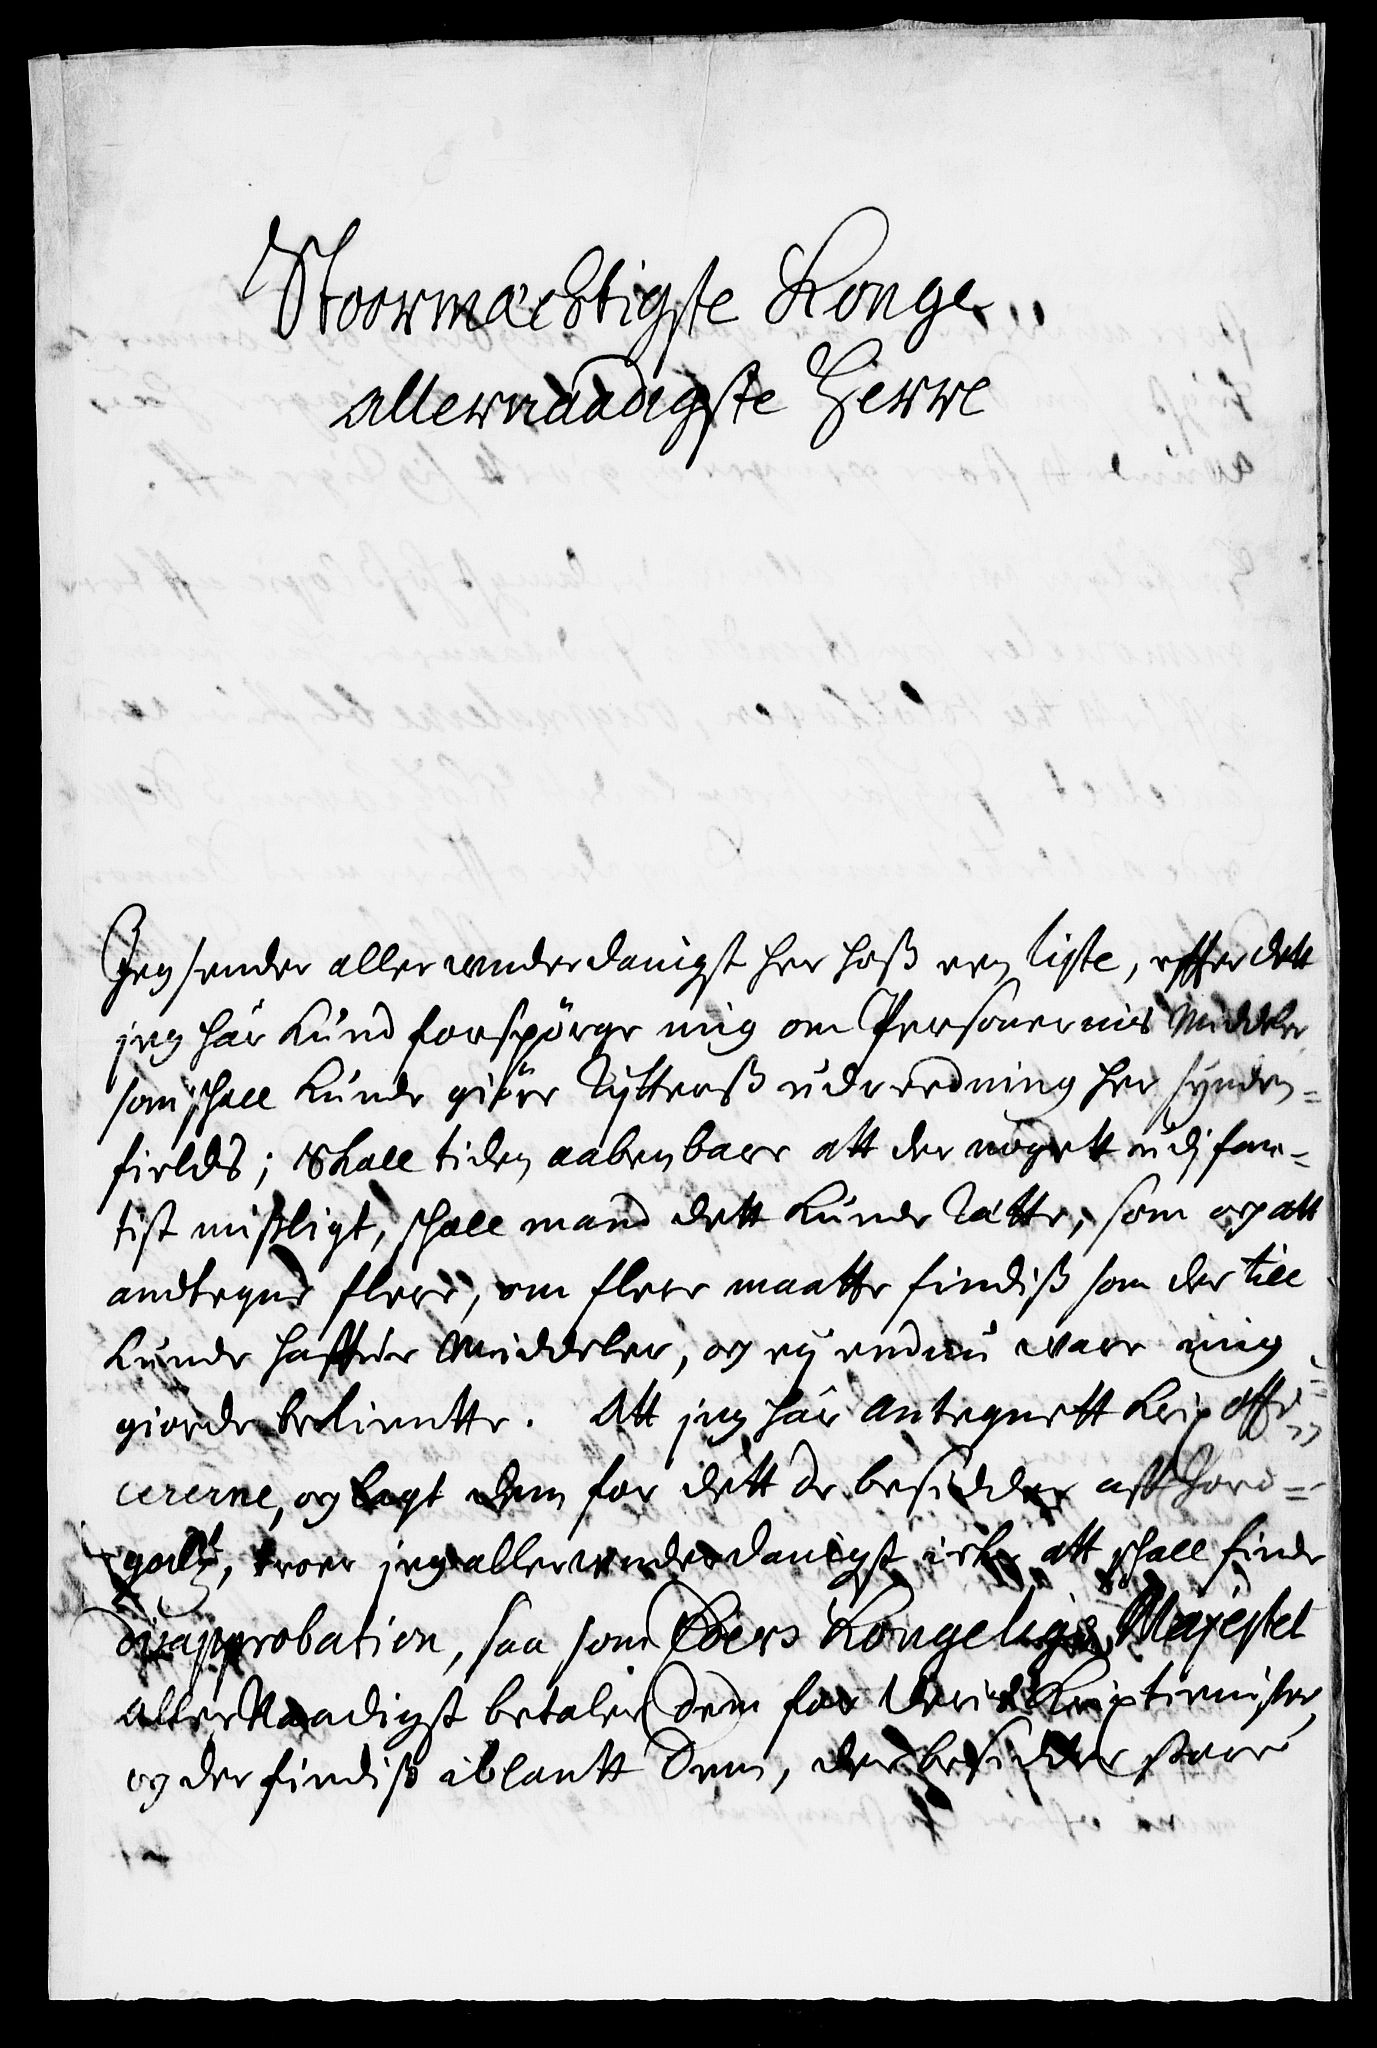 Stoormächtigste Konge
allernaadigste Herre
Jeg sender allerunderdanigst her hoß een liste, effter dett
jeg här kund forspörge mig om Personernis Middeler
som schall kunde giöre Rÿtterß udreedning her synden=
fields; Skall tiden aabenbare att der nogett udj fan=
tist mistligt, schall mand dett kunde rätte, som og att
andtegne flere, om flere maatte findiß som der till
kunde haffue Middeler, og eÿ endnu vare mig
giorde bekientte. Att jeg här antegnett Krigs offi=
cererne, og lagt dem for dett de besidder aff Jord=
godtz, troer jeg allerunderdanigst icke att schall finde
disaprobation, saa som Eders Kongelige Majestet
allerNaadigst betaler dem for deris Krigstienister,
og der findiß iblantt dem, der besidder store